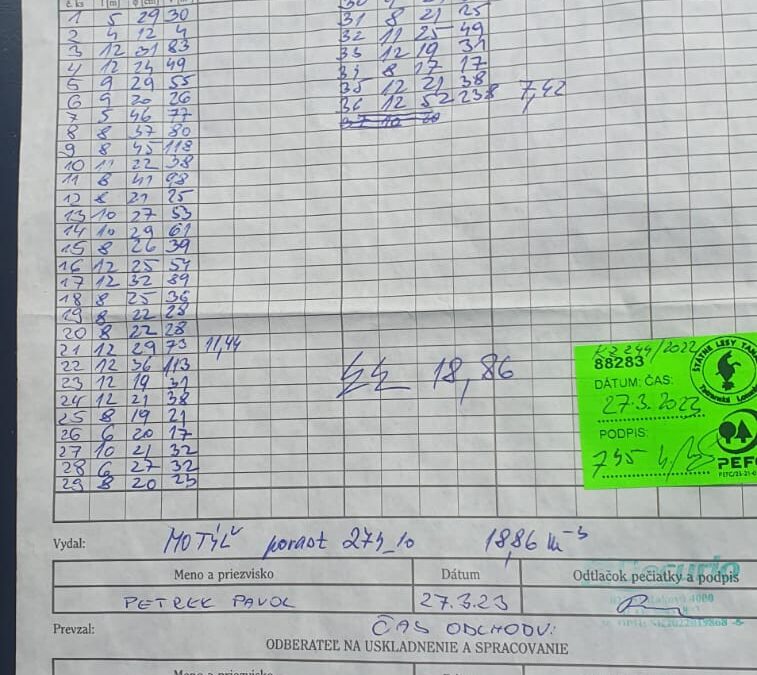 č. ks l [m] φ [cm]
1 5 29 30
2 4 12 4
3 12 31 83
4 12 24 49
5 9 29 55
6 9 20 26
7 5 46 77
8 8 37 80
9 8 45 118
10 11 22 38
11 8 41 98
12 8 21 25
13 10 27 53
14 10 29 61
15 8 26 39
16 12 25 54
17 12 32 89
18 8 25 36
19 8 22 28
20 8 22 28
21 12 29 73 11,44
22 12 36 113
23 12 19 31
24 12 21 38
25 8 19 21
26 6 20 17
27 10 21 32
28 6 27 32
29 8 20 23
31 8 21 25
32 11 25 49
33 12 19 31
34 8 17 17
35 12 21 38
36 12 52 238 7,42
37 10 20
18,86
KZ 244/2022
88283
DÁTUM: ČAS:
27.3.2023
PODPIS:
745
ŠTÁTNE LESY
PEFC
Vydal: MOTÝĽ porast 274_10 18,86 m-3
Meno a priezvisko Dátum Odtlačok pečiatky a podpis
PETREK PAVOL 27.3.23
Prevzal: ČAS ODCHODU:
ODBERATEĽ NA USKLADNENIE A SPRACOVANIE
Meno a priezvisko